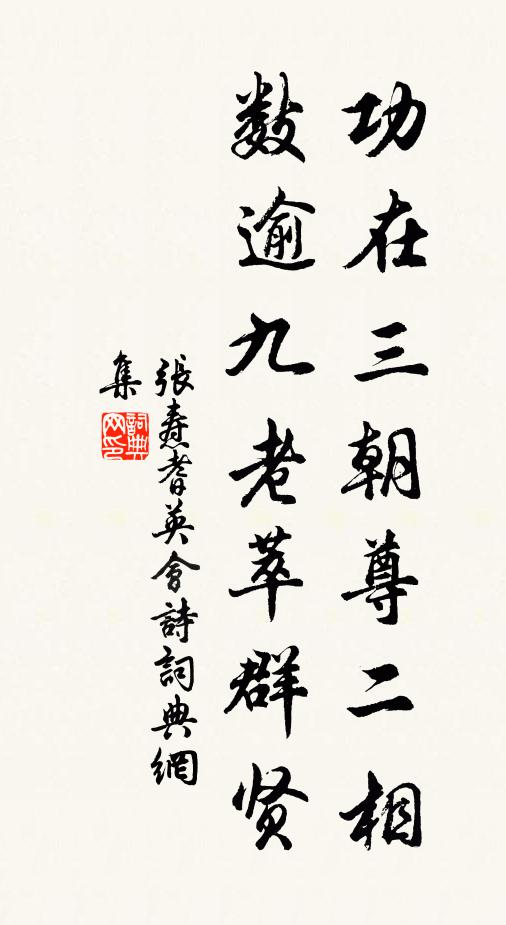 功在三朝尊二相
数逾九老萃群贤
張焘耆英會詩詞典網
集
詞典网印